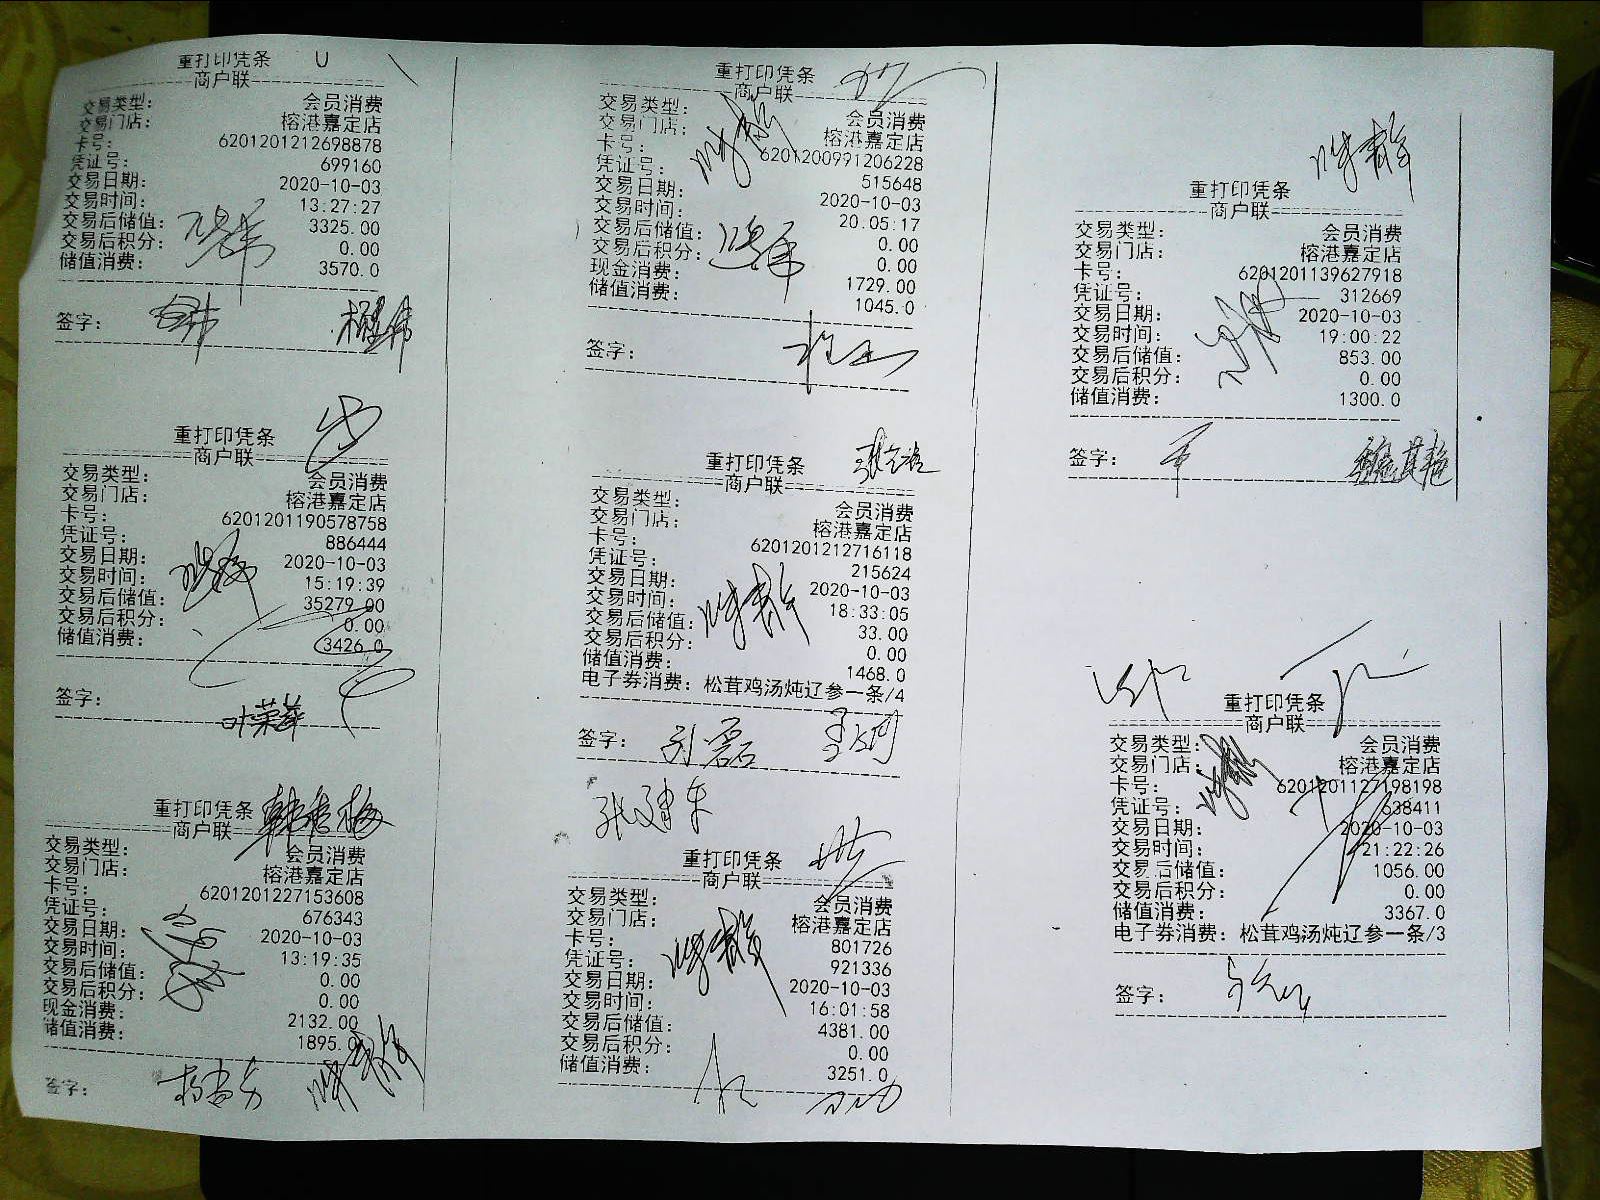 重打印凭条
商户联
交易类型： 会员消费
交易门店： 榕港嘉定店
卡号： 6201201212698878
凭证号： 699160
交易日期： 2020-10-03
交易时间： 13:27:27
交易后储值： 3325.00
交易后积分： 0.00
储值消费： 3570.0
签字：
重打印凭条
商户联
交易类型： 会员消费
交易门店： 榕港嘉定店
卡号： 6201201190578758
凭证号： 886444
交易日期： 2020-10-03
交易时间： 15:19:39
交易后储值： 35279.00
交易后积分： 0.00
储值消费： 3426.0
签字：
叶荣华
重打印凭条
商户联
交易类型： 会员消费
交易门店： 榕港嘉定店
卡号： 6201201227153608
凭证号： 676343
交易日期： 2020-10-03
交易时间： 13:19:35
交易后储值： 0.00
交易后积分： 0.00
现金消费： 2132.00
储值消费： 1895.0
签字：
重打印凭条
商户联
交易类型： 会员消费
交易门店： 榕港嘉定店
卡号： 6201200991206228
凭证号： 515648
交易日期： 2020-10-03
交易时间： 20.05:17
交易后储值： 0.00
交易后积分： 0.00
现金消费： 1729.00
储值消费： 1045.0
签字：
重打印凭条
商户联
交易类型： 会员消费
交易门店： 榕港嘉定店
卡号： 6201201212716118
凭证号： 215624
交易日期： 2020-10-03
交易时间： 18:33:05
交易后储值： 33.00
交易后积分： 0.00
储值消费： 1468.0
电子券消费：松茸鸡汤炖辽参一条/4
签字： 孙磊
张建东
重打印凭条
商户联
交易类型： 会员消费
交易门店： 榕港嘉定店
卡号： 801726
凭证号： 921336
交易日期： 2020-10-03
交易时间： 16:01:58
交易后储值： 4381.00
交易后积分： 0.00
储值消费： 3251.0
重打印凭条
商户联
交易类型： 会员消费
交易门店： 榕港嘉定店
卡号： 6201201139627918
凭证号： 312669
交易日期： 2020-10-03
交易时间： 19:00:22
交易后储值： 853.00
交易后积分： 0.00
储值消费： 1300.0
签字：
重打印凭条
商户联
交易类型： 会员消费
交易门店： 榕港嘉定店
卡号： 6201201127198198
凭证号： 638411
交易日期： 2020-10-03
交易时间： 21:22:26
交易后储值： 1056.00
交易后积分： 0.00
储值消费： 3367.0
电子券消费：松茸鸡汤炖辽参一条/3
签字：